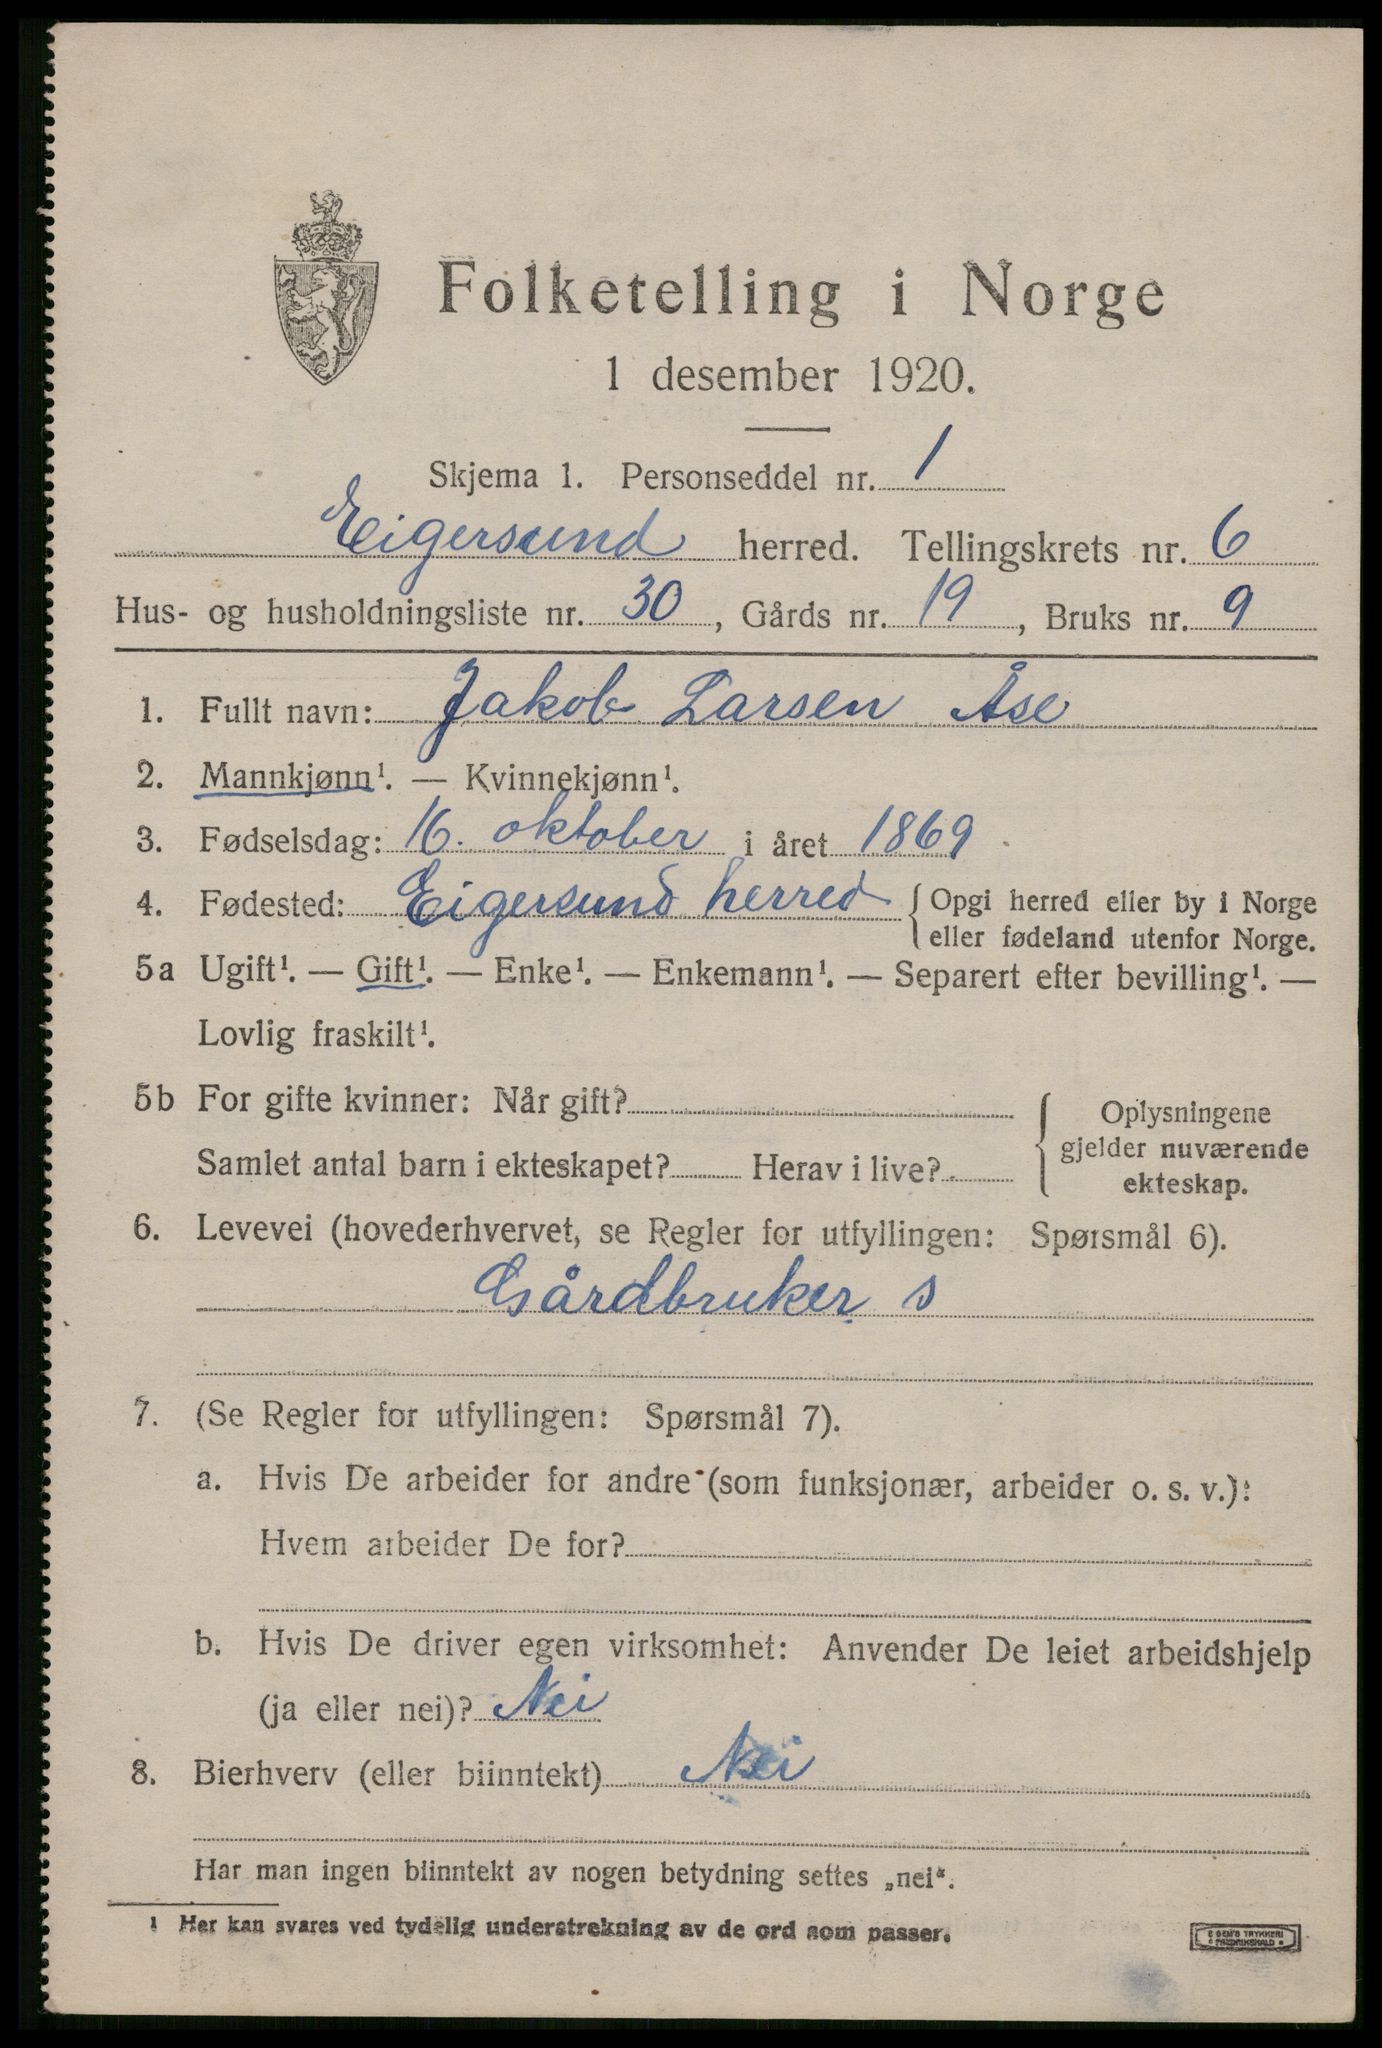 Folketelling i Norge
1 desember 1920.
Skjema 1. Personseddel nr. 1
Eigersund herred. Tellingskrets nr. 6
Hus- og husholdningsliste nr. 30, Gårds nr. 19, Bruks nr. 9
1. Fullt navn: Jakob Larsen Åse
2. Mannkjønn¹. — Kvinnekjønn¹.
3. Fødselsdag: 16. oktober i året 1869
4. Fødested: Eigersund herred { Opgi herred eller by i Norge
eller fødeland utenfor Norge.
5a Ugift¹. — Gift¹. — Enke¹. — Enkemann¹. — Separert efter bevilling¹. —
Lovlig fraskilt¹.
5b For gifte kvinner: Når gift?
Samlet antal barn i ekteskapet? Herav i live?
{ Oplysningene
gjelder nuværende
ekteskap.
6. Levevei (hovederhvervet, se Regler for utfyllingen: Spørsmål 6).
Gårdbruker s
7. (Se Regler for utfyllingen: Spørsmål 7).
a. Hvis De arbeider for andre (som funksjonær, arbeider o. s. v.):
Hvem arbeider De for?
b. Hvis De driver egen virksomhet: Anvender De leiet arbeidshjelp
(ja eller nei)? Nei
8. Bierhverv (eller biinntekt) Nei
Har man ingen biinntekt av nogen betydning settes „nei“.
1 Her kan svares ved tydelig understrekning av de ord som passer.
E SEM'S TRYKKERI
FREDRIKSHALD